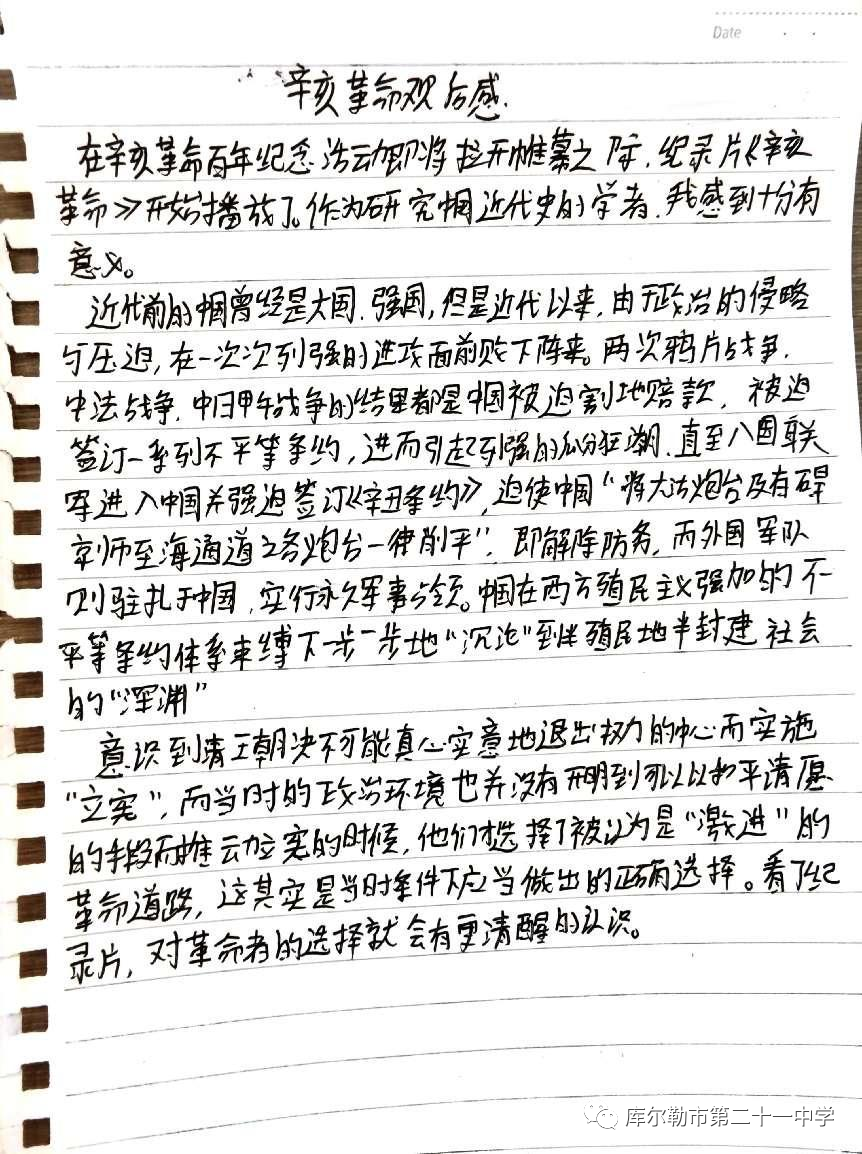 Date
辛亥革命观后感.
在辛亥革命百年纪念活动即将拉开帷幕之际,纪录片《辛亥
革命》开始播放了。作为研究中国近代史的学者,我感到十分有
意义。
近代前的中国曾经是大国、强国,但是近代以来,由于政治的侵略
与压迫,在一次次列强的进攻面前败下阵来。两次鸦片战争、
中法战争、中日甲午战争的结果都是中国被迫割地赔款,被迫
签订一系列不平等条约,进而引起列强的瓜分狂潮,直至八国联
军进入中国并强迫签订《辛丑条约》,迫使中国“将大沽炮台及有碍
京师至海通道之各炮台一律削平”,即解除防务,而外国军队
则驻扎于中国,实行永久军事占领。中国在西方殖民主义强加的不
平等条约体系束缚下一步一步地“沉沦”到半殖民地半封建社会
的“深渊”
意识到清王朝决不可能真心实意地退出权力的中心而实施
“立宪”,而当时的政治环境也并没有开明到可以以和平请愿
的手段而推动立宪的时候,他们才选择了被认为是“激进”的
革命道路,这其实是当时条件下应当做出的正确选择。看了纪
录片,对革命者的选择就会有更清醒的认识。
库尔勒市第二十一中学